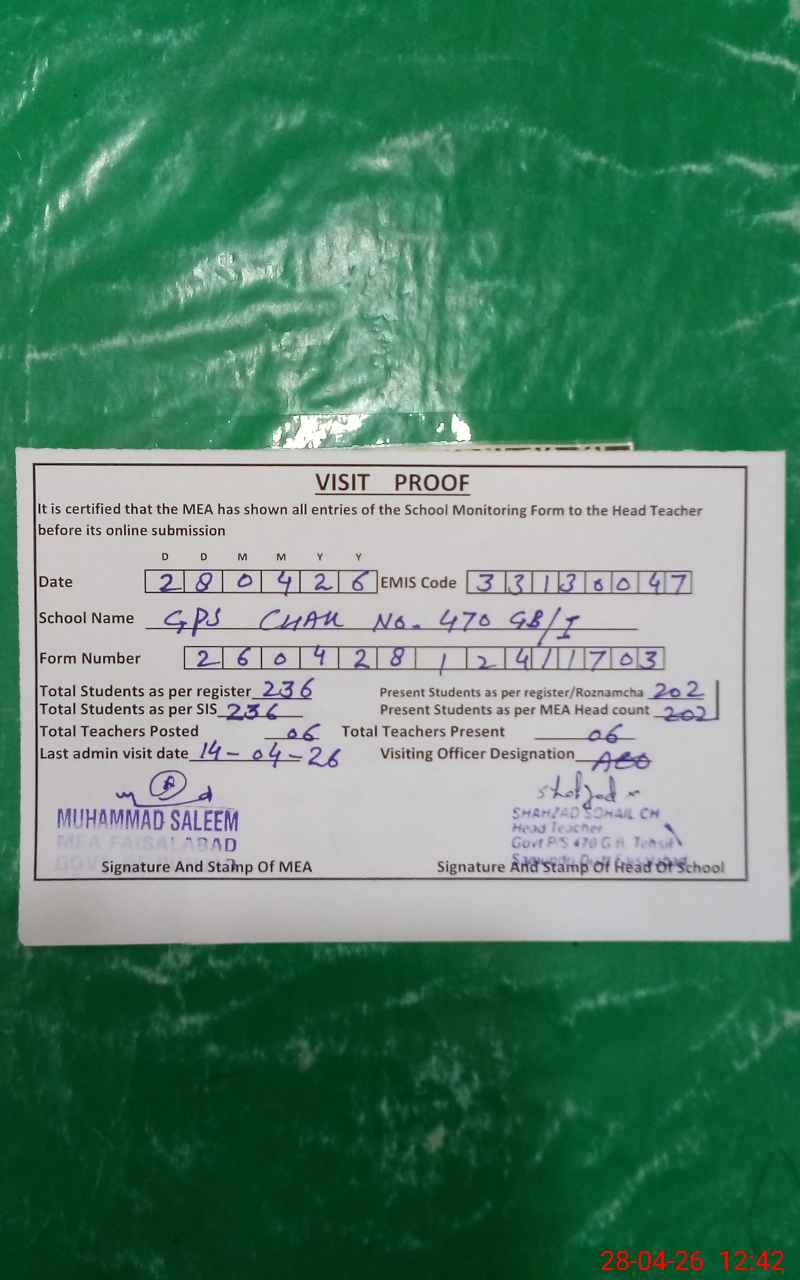 VISIT PROOF
It is certified that the MEA has shown all entries of the School Monitoring Form to the Head Teacher
before its online submission
D D M M Y Y
Date 2 8 0 4 2 6 EMIS Code 3 3 1 3 0 0 4 7
School Name GPS CHAK No. 470 GB/I
Form Number 2 6 0 4 2 8 1 2 4 1 1 7 0 3
Total Students as per register 236 Present Students as per register/Roznamcha 202
Total Students as per SIS 236 Present Students as per MEA Head count 202
Total Teachers Posted 06 Total Teachers Present 06
Last admin visit date 14-04-26 Visiting Officer Designation AEO
Shahzad
MUHAMMAD SALEEM SHAHZAD SOHAIL CH
MEA FAISALABAD Head Teacher
Govt P/S 470 G.B. Tehsil
Signature And Stamp Of MEA Signature And Stamp Of Head Of School
28-04-26 12:42